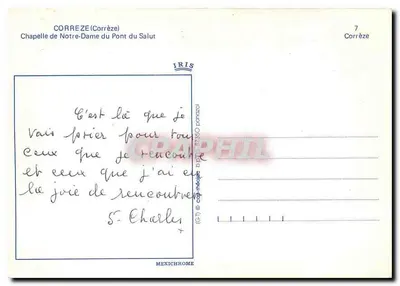 CORREZE (Corrèze)
Chapelle de Notre-Dame du Pont du Salut
7
Corrèze
IRIS
C'est là que je
vais prier pour tous
ceux que je rencontre
et ceux que j'ai eu
la joie de rencontrer
S. Charles
CARTAPHIL
MEXICHROME